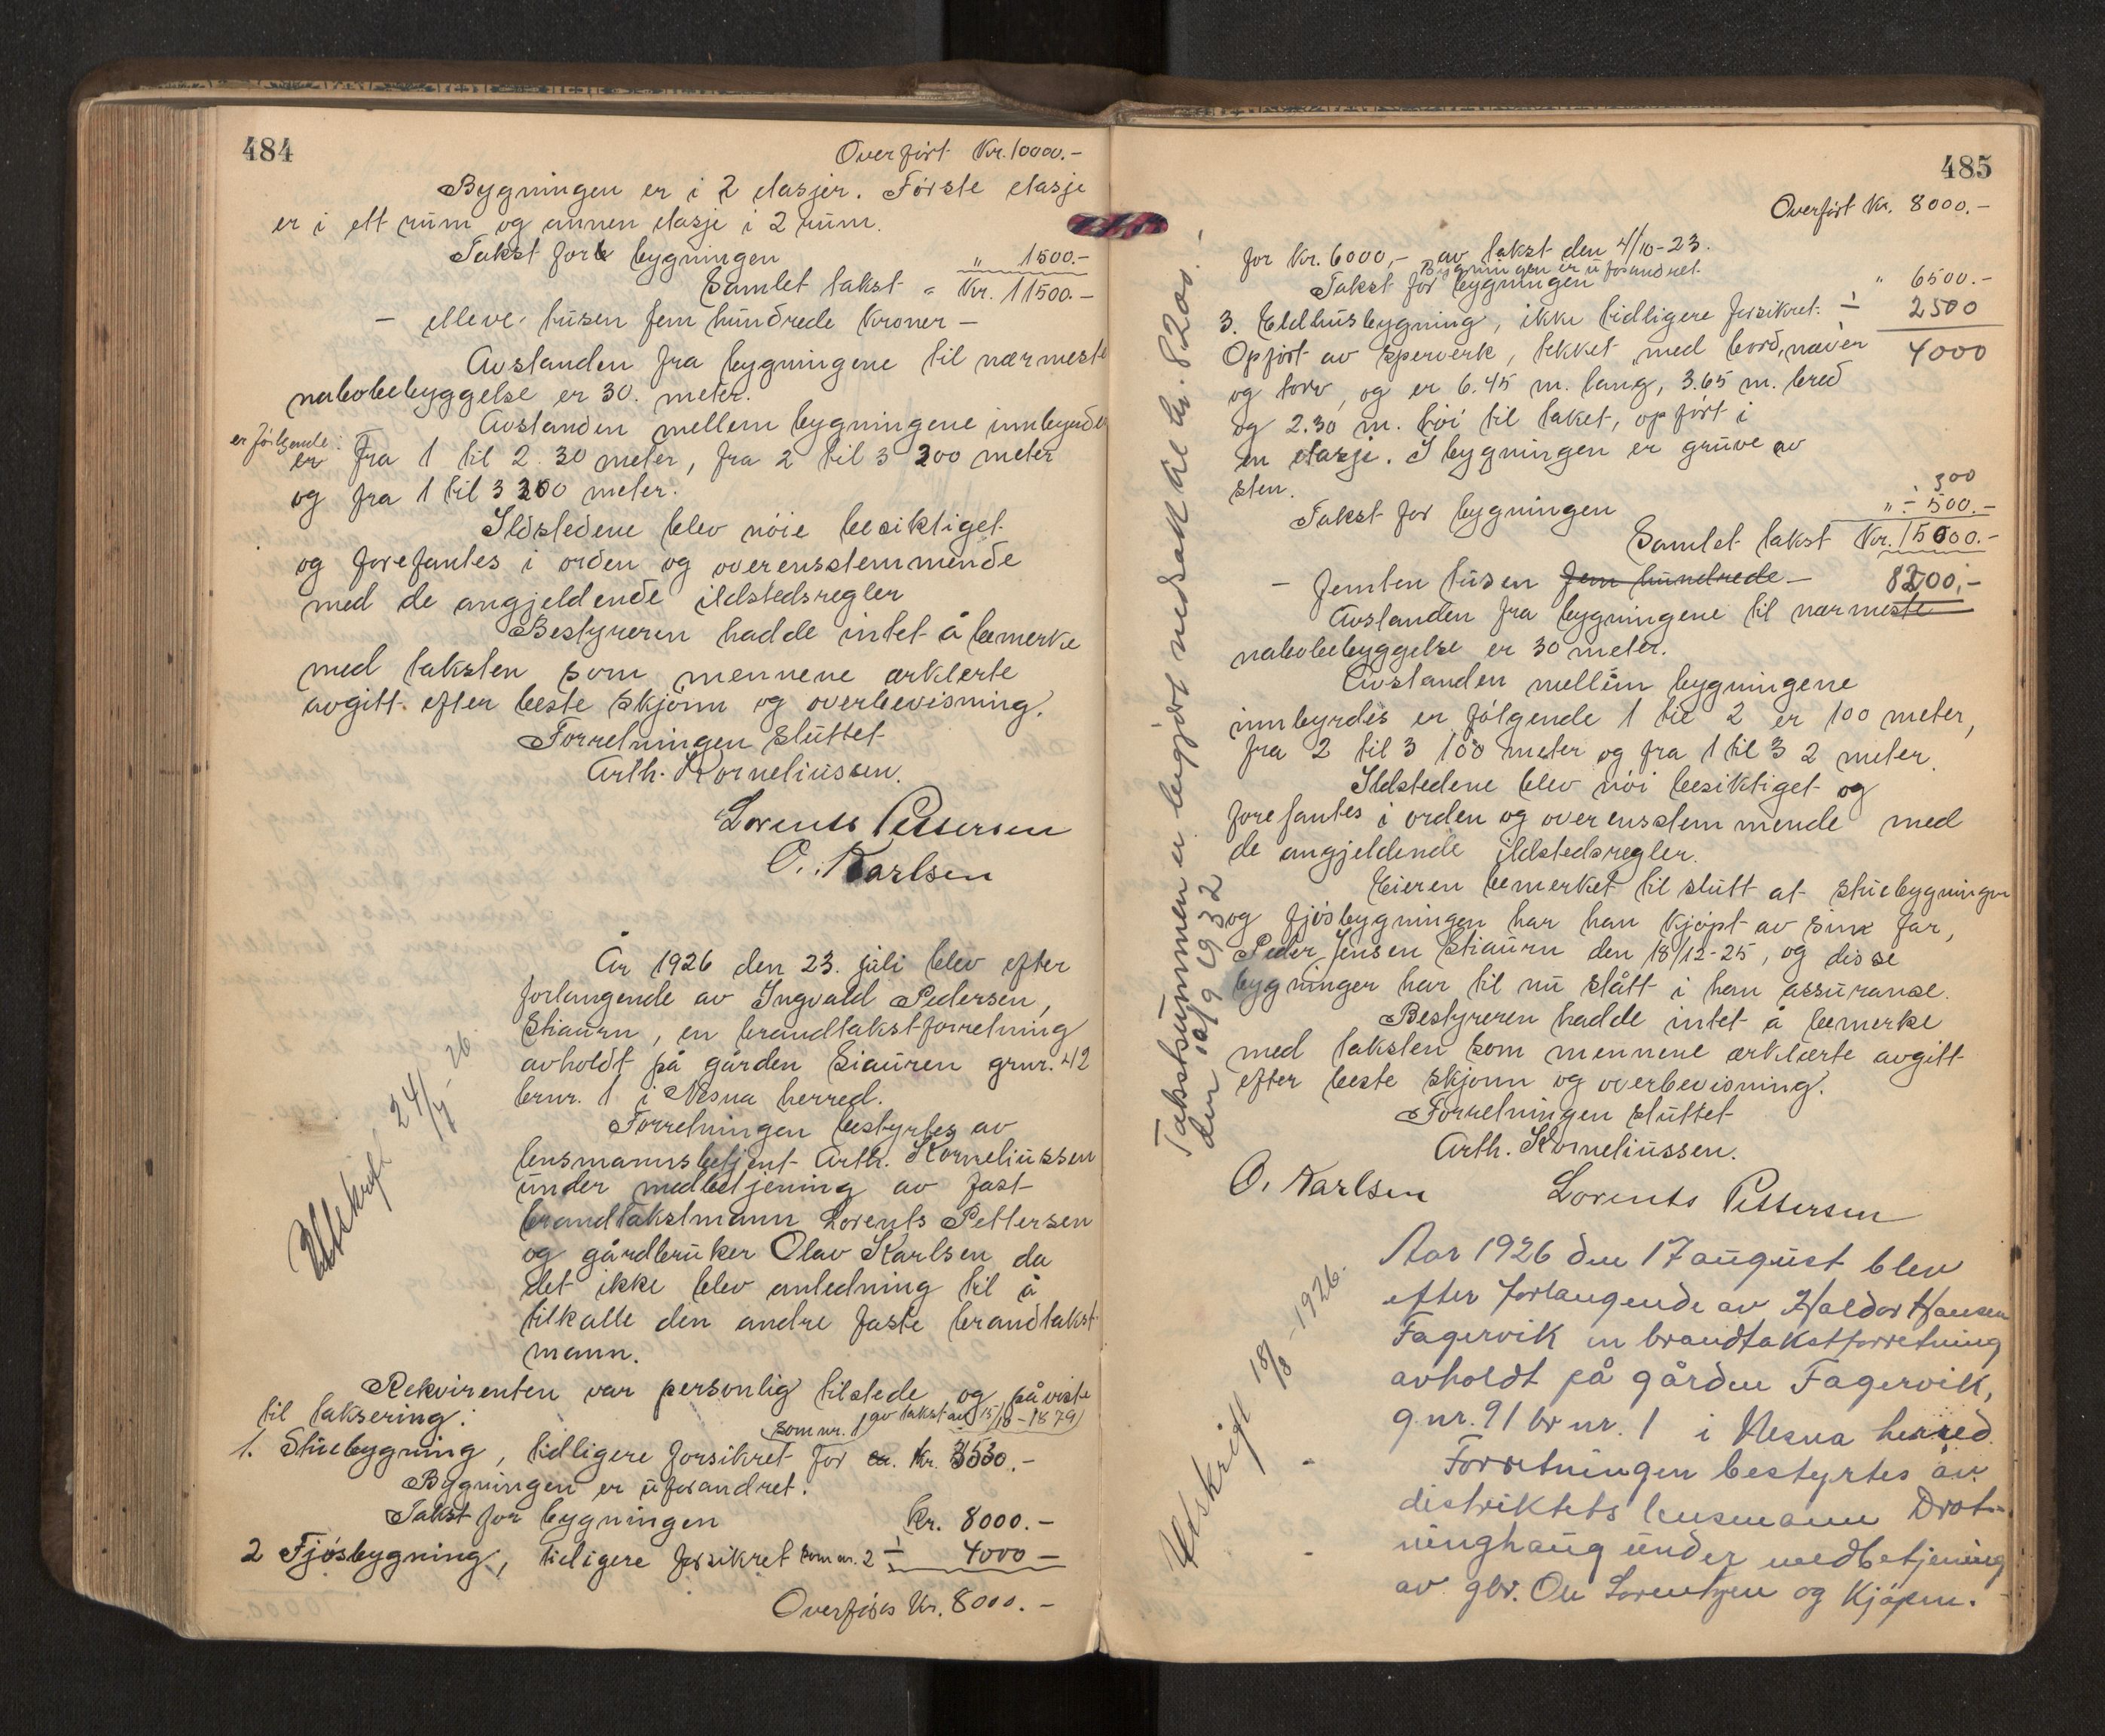 484
Overført Kr. 10000.-
Bygningen er i 2 etasjer. Første etasje
er i ett rum og annen etasje i 2 rum.
Takst for bygningen " 1500.-
Samlet takst = Kr. 11500.-
- elleve tusen fem hundrede kroner -
Avstanden fra bygningene til nærmeste
nabobebyggelse er 30. meter.
Avstanden mellem bygningene innbyrdes
er følgende:
er fra 1 til 2. 30 meter, fra 2 til 3 200 meter
og fra 1 til 3 200 meter.
Ildstedene blev nöie besiktiget
og forefantes i orden og overensstemmende
med de angjeldende ildstedsregler
Bestyreren hadde intet å bemerke
med taksten som mennene erklerte
avgitt efter beste skjönn og overbevisning.
Forretningen sluttet
Arth. Korneliussen.
Lorents Pettersen
O. Karlsen
År 1926 den 23. juli blev efter
forlangende av Ingvald Pedersen,
Stiaurn, en brandtakstforretning
avholdt på gården Siauren grnr. 42
brnr. 1 i Nesna herred.
Utskrift 24/7-26
Forretningen bestyrtes av
lensmannsbetjent Arth. Korneliussen
under medbetjening av fast
brandtakstmann Lorents Pettersen
og gårdbruker Olav Karlsen da
det ikke blev anledning til å
tilkalle den andre faste brandtakst
mann.
Rekvirenten var personlig tilstede og påviste
til taksering:
som nr. 1 av takst av 15/10-1879
1. Stuebygning, tidligere forsikret for Kr. 3530.-
Bygningen er uforandret.
Takst for bygningen Kr. 8000.-
2 Fjøsbygning, tidligere forsikret som nr. 2 ÷ 4000 -
Overføres Kr. 8000.-
485
Overført Kr. 8000.-
for Kr. 6000,- av takst den 4/10-23.
Bygningen er uforandret.
Takst for bygningen " 6500.-
3. Eldhusbygning, ikke tidligere forsikret. ÷ 2500
Opført av sperverk, tekket med bord, never 4000
og torv, og er 6.45 m. lang, 3.65 m. bred
og 2.30 m. höi til taket, opført i
en etasje. I bygningen er gruve av
sten.
300
Takst for bygningen " - 500.-
Samlet takst Kr. 15000.-
- femten tusen fem hundrede - 8200,-
Avstanden fra bygningene til nærmeste
nabobebyggelse er 30 meter.
Avstanden mellem bygningene
innbyrdes er følgende 1 til 2 er 100 meter,
fra 2 til 3 100 meter og fra 1 til 3 2 meter.
Ildstedene blev nöi besiktiget og
forefantes i orden og overensstemmende med
de angjeldende ildstedsregler.
Eieren bemerket til slutt at stuebygningen
og fjösbygningen har han kjöpt av sin far,
Peder Jensen Stiaurn den 18/12-25, og disse
bygninger har til nu stått i han assuranse.
Bestyreren hadde intet å bemerke
med taksten som mennene erklærte avgitt
efter beste skjönn og overbevisning.
Forretningen sluttet
Arth. Korneliussen.
O. Karlsen Lorents Pettersen
Takstsummen er begjært nedsatt til kr. 8200.-
den 10/9 1932
Aar 1926 den 17 august blev
efter forlangende av Haldor Hansen
Fagervik en brandtakstforretning
avholdt på gården Fagervik,
gnr. 91 br nr. 1 i Nesna herred.
Utskrift 18/8-1926.
Forretningen bestyrtes av
distriktets lensmann Drot-
ninghaug under medbetjening
av gbr. Ole Lorentzen og Kjøpm.